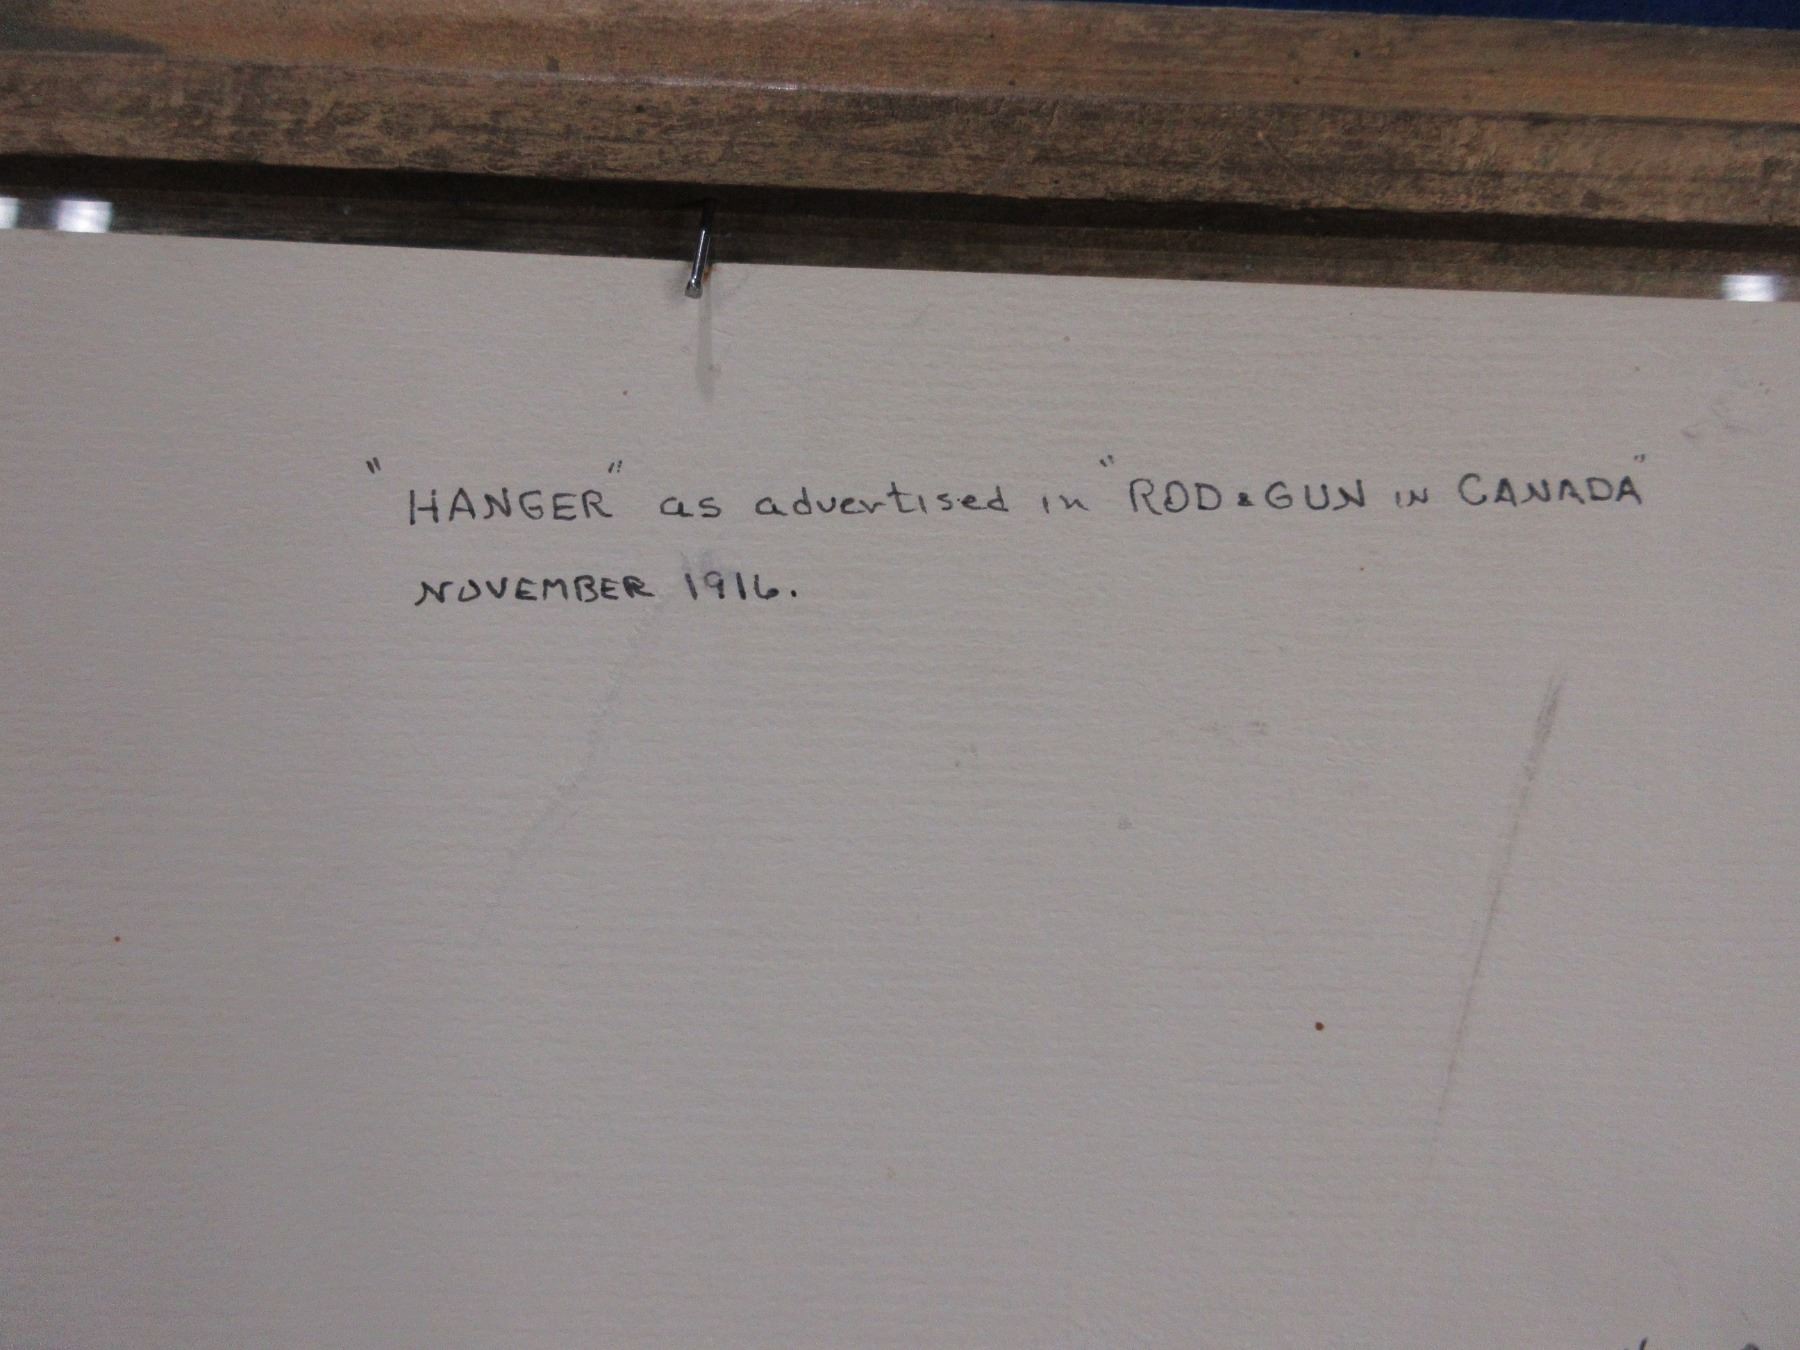 "HANGER" as advertised in "ROD & GUN IN CANADA"
NOVEMBER 1916.